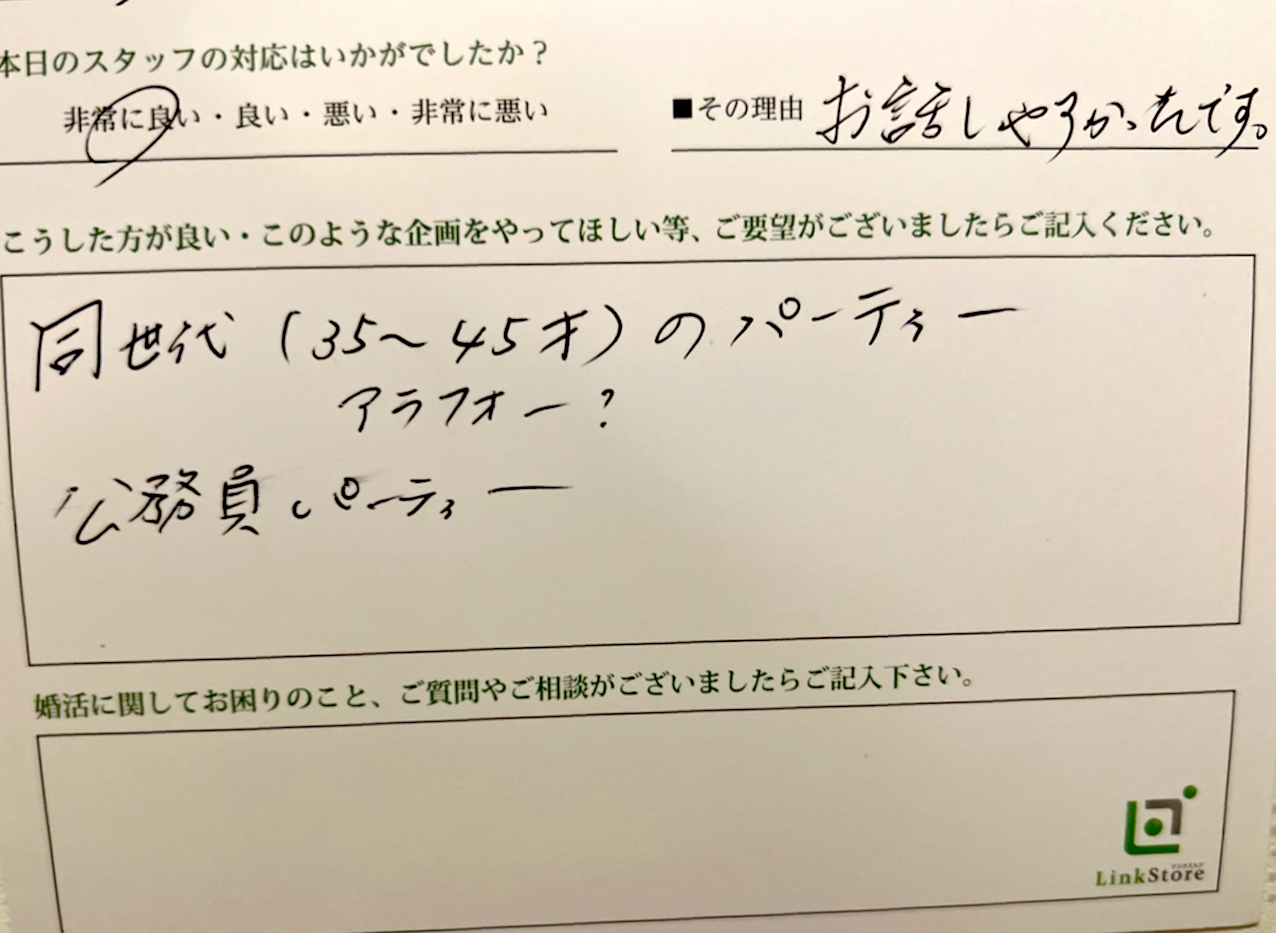 本日のスタッフの対応はいかがでしたか？
非常に良い・良い・悪い・非常に悪い
■その理由 お話しやすかったです。
こうした方が良い・このような企画をやってほしい等、ご要望がございましたらご記入ください。
同世代（35～45才）のパーティー
アラフォー？
公務員パーティー
婚活に関してお困りのこと、ご質問やご相談がございましたらご記入下さい。
LinkStore